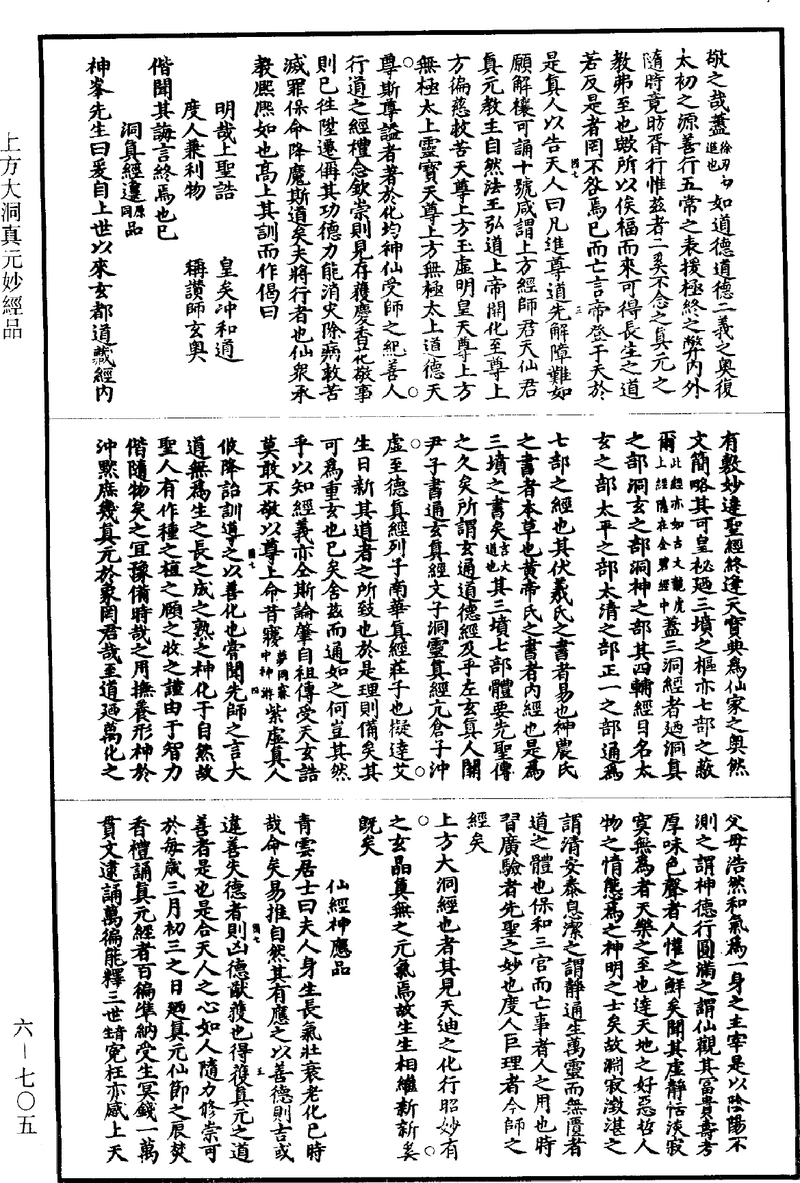 上方大洞真元妙經品
六—七〇五
敬之哉蓋徐刃切進也如道德道德二義之奧復
太初之源善行五常之表援極終之弊內外
隨時竟昉胥行惟茲者二奚不念之真元之
教弗至也歟所以俟福而來可得長生之道
若反是者罔不咎焉已而亡言帝登于天於
是真人以告天人曰凡進尊道先解障難如
願解禳可誦十號咸謂上方經師君天仙君
真元教主自然法王弘道上帝開化至尊上
方徧慈救苦天尊上方玉虛明皇天尊上方
無極太上靈寶天尊上方無極太上道德天
尊斯尊謚者著於化均神仙受師之紀善人
行道之經禮念欽崇則見存獲慶香花敬事
則已往陞遷稱其功德力能消灾除病救苦
滅罪保命降魔斯道矣夫將行者也仙衆承
教熙熙如也高上其訓而作偈曰
明哉上聖誥 皇矣冲和道
度人兼利物 稱讚師玄奧
偕聞其誨言終焉也已
洞真經邍原同品
神峯先生曰爰自上世以來玄都道藏經內
有數妙達聖經終達天寶典爲仙家之奧然
文簡略其可皇秘廼三墳之樞亦七部之蔽
爾此經亦如古文龍虎上經隱在金碧經中蓋三洞經者廼洞真
之部洞玄之部洞神之部其四輔經目名太
玄之部太平之部太清之部正一之部通爲
七部之經也其伏羲氏之書者易也神農氏
之書者本草也黃帝氏之書者內經也是爲
三墳之書矣言大道也其三墳七部體要先聖傳
之久矣所謂玄通道德經及乎左玄真人關
尹子書通玄真經文子洞靈真經亢倉子沖
虛至德真經列子南華真經莊子也擬達艾
生日新其道者之所致也於是理則備矣其
可爲重玄也已矣舍兹而通如之何豈其然
乎以知經義亦仝斯論肇自祖傳受天玄誥
莫敢不敬以尊上命昔寢夢同寐中神游紫虛真人
伩降詒訓導之以善化也嘗聞先師之言大
道無爲生之長之成之熟之神化于自然故
聖人有作種之植之願之收之謹由于智力
偕隨物矣之宜豫備時哉之用撫養形神於
沖默庶幾真元於象罔君哉至道廼萬化之
父母浩然和氣爲一身之主宰是以陰陽不
測之謂神德行圓滿之謂仙觀其冨貴壽考
厚味色聲者人懽之鮮矣聞其虛靜恬淡寂
寞無爲者天樂之至也達天地之好惡哲人
物之情態爲之神明之士矣故淵寂澂湛之
謂清安泰息潔之謂靜通生萬靈而無匱者
道之體也保和三官而亡事者人之用也時
習廣驗者先聖之妙也度人巨理者今師之
經矣
上方大洞經也者其見天迪之化行昭妙有
之玄晶負無之元氣焉故生生相繼新新奚
旣矣
仙經神應品
青雲居士曰夫人身生長氣壯衰老化已時
哉命矣易推自然其有應之以善德則吉或
違善失德者則凶德猷獲也得獲真元之道
善者是也是合天人之心如人隨力修崇可
於每歲三月初三之日廼真元仙節之辰焚
香禮誦真元經者百徧準納受生冥錢一萬
貫文逮誦萬徧能釋三世轖寃枉亦感上天